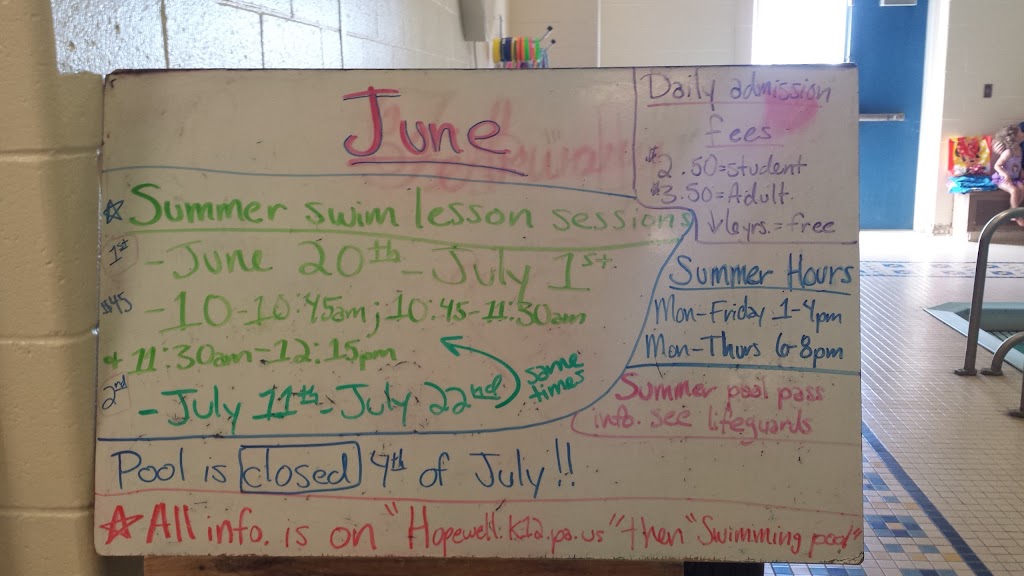 June
Daily admission
fees
$2.50=student
$3.50=Adult
↓6yrs.=free
☆ Summer swim lesson sessions
1st
- June 20th - July 1st
$45
- 10-10:45am; 10:45-11:30am
+ 11:30am-12:15pm
2nd
- July 11th - July 22nd
same
times
Summer Hours
Mon-Friday 1-4pm
Mon-Thurs 6-8pm
Summer pool pass
info. see lifeguards
Pool is closed 4th of July!!
☆ All info. is on "Hopewell.k12.pa.us" then "Swimming pool"